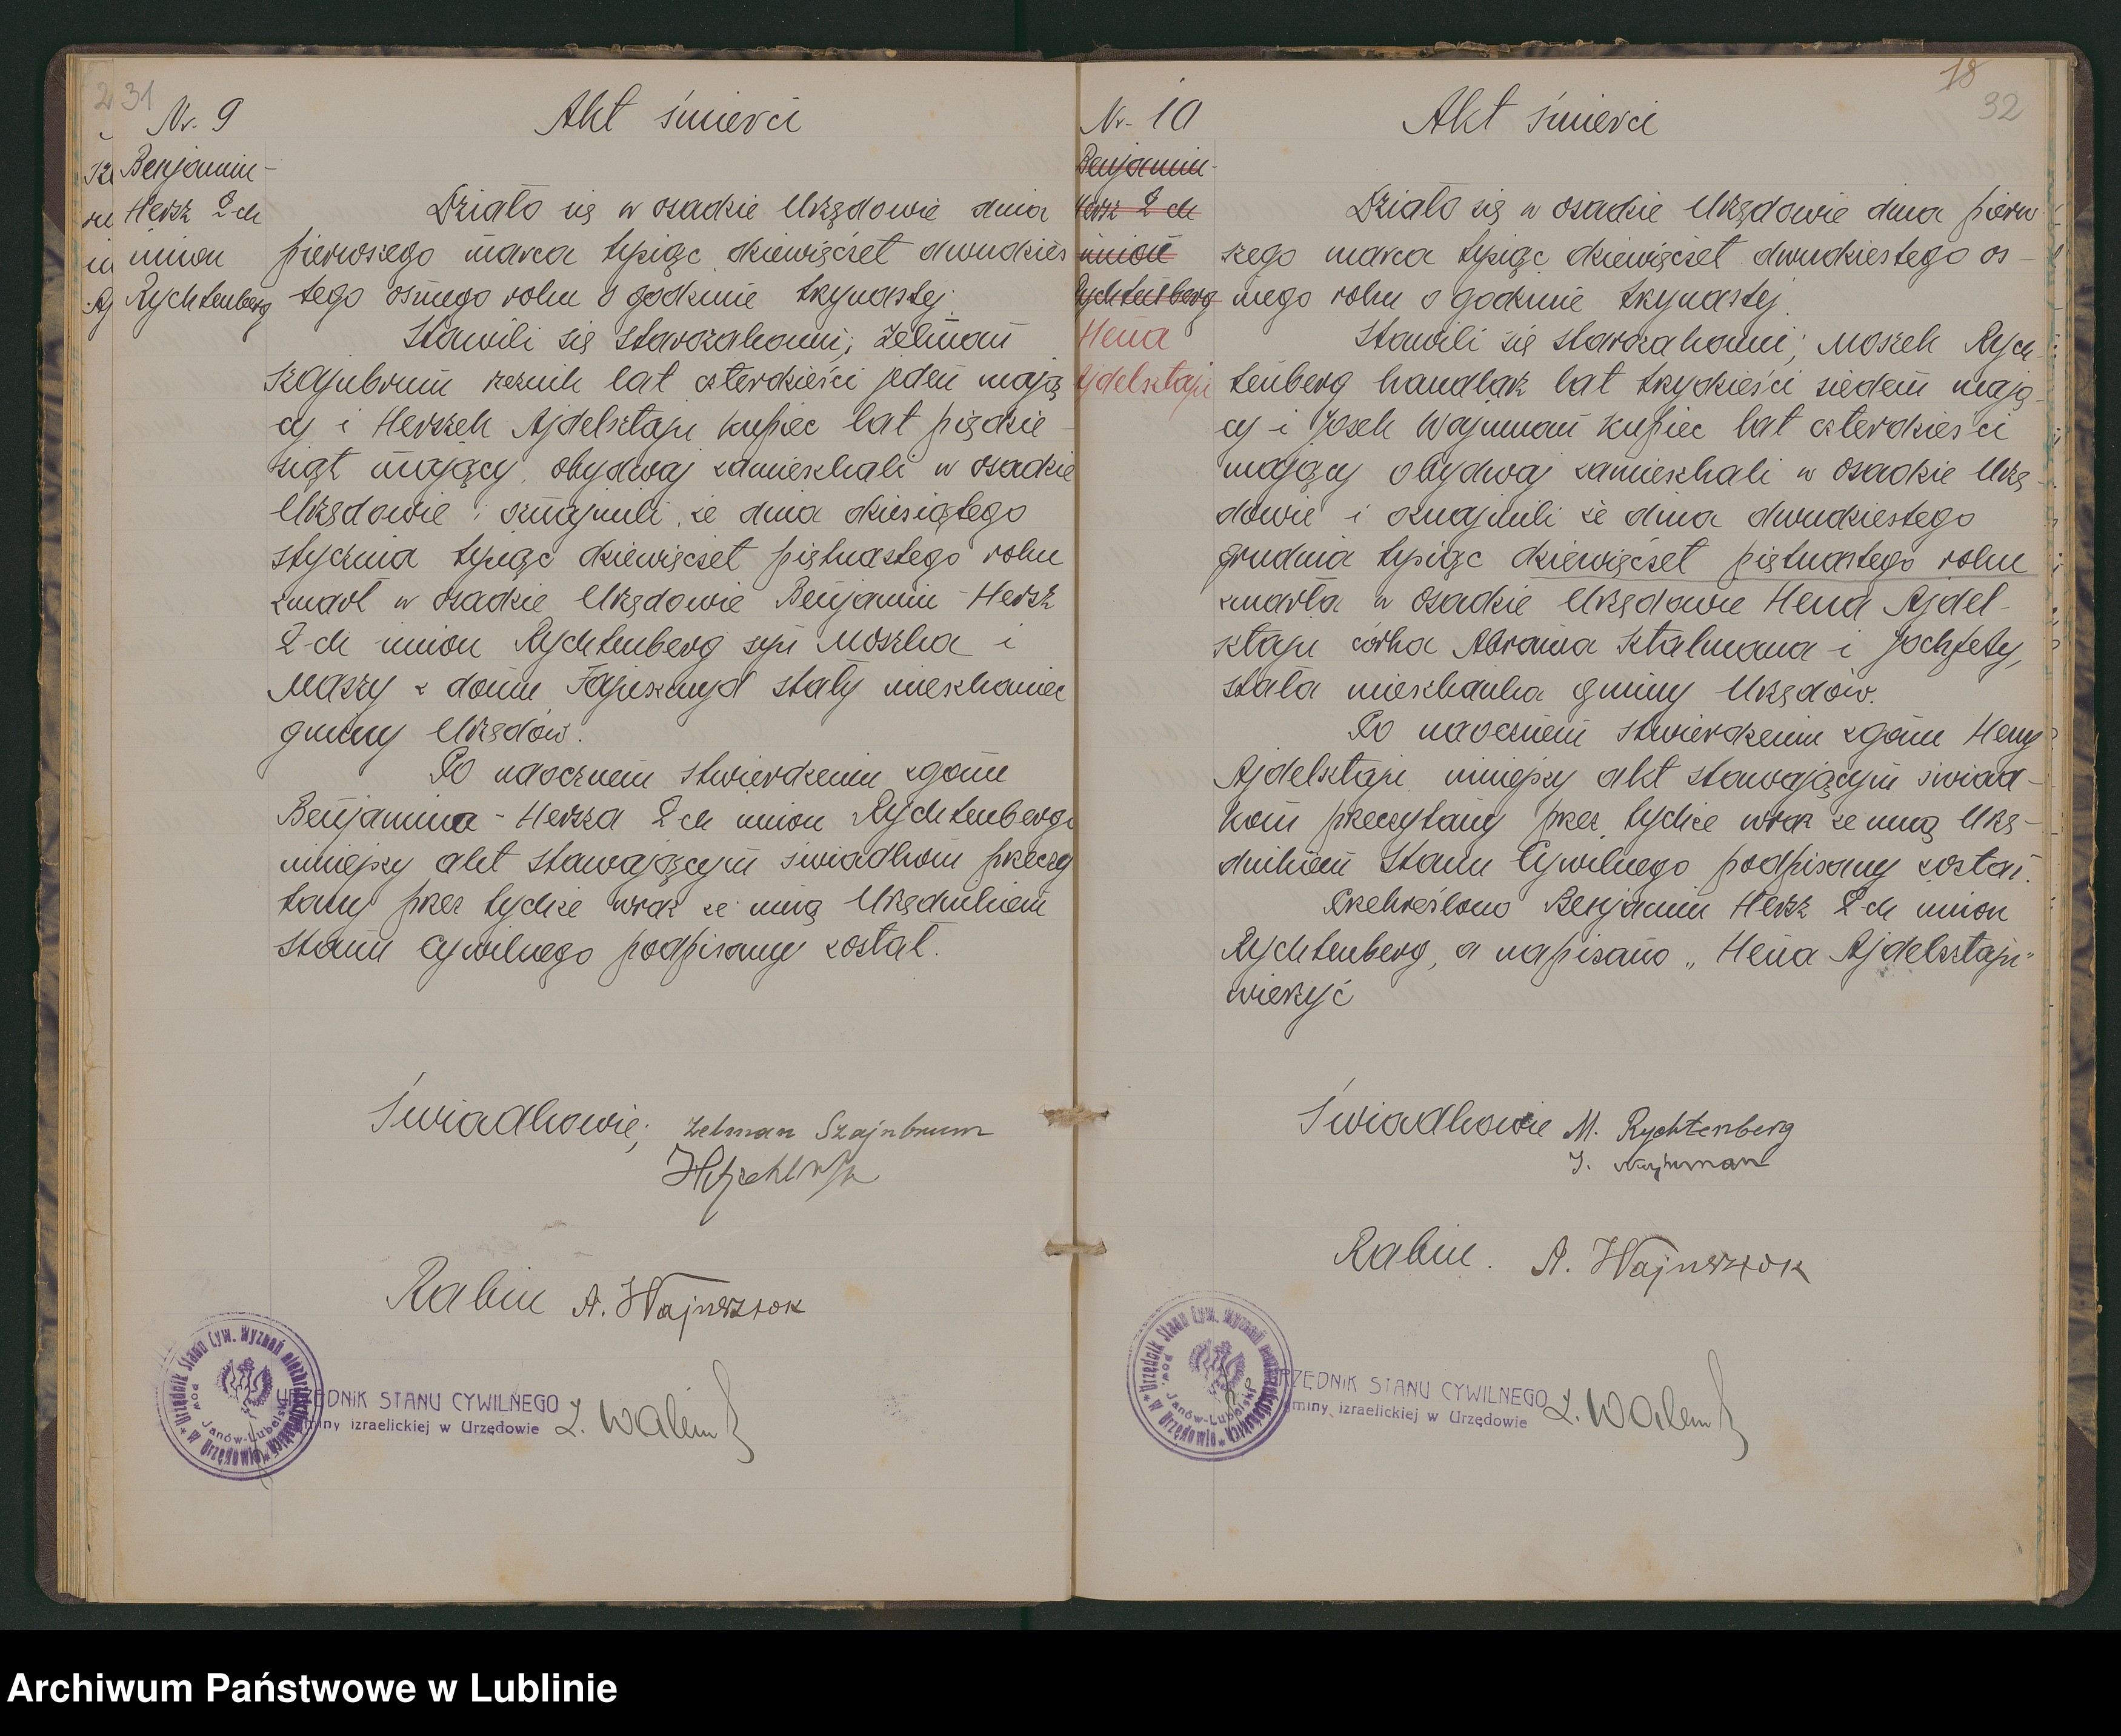 31
Nr. 9
Akt śmierci
Benjamin-
Hersz 2-ch
imion
Rychtenberg
Działo się w osadzie Urzędowie dnia
pierwszego marca tysiąc dziewięćset dwudzies
tego ósmego roku o godzinie trzynastej.
Stawili się starozakonni; Zelman
Szajnbrum rzeźnik lat czterdzieści jeden mają
cy i Herszek Ajdelsztajn kupiec lat pięćdzie-
siąt mający, obydwaj zamieszkali w osadzie
Urzędowie i oznajmili, że dnia dziesiątego
stycznia tysiąc dziewięćset piętnastego roku
zmarł w osadzie Urzędowie Benjamin-Hersz
2-ch imion Rychtenberg syn Moszka i
Maszy z domu Fajnsznyd stały mieszkaniec
gminy Urzędów.
Po naocznem stwierdzeniu zgonu
Benjamina-Hersza 2ch imion Rychtenberga
niniejszy akt stawającym świadkom przeczy
tany przez tychże wraz ze mną Urzędnikiem
Stanu Cywilnego podpisany został.
Świadkowie; Zelman Szajnbrum
Rabin A. Wajnsztok
Urzędnik Stanu Cyw. Wyznań niechrześcijańskich
w Urzędowie
pow. Janów-Lubelski
URZĘDNIK STANU CYWILNEGO
gminy izraelickiej w Urzędowie
18
32
Nr. 10
Akt śmierci
Benjamin-
Hersz 2 ch
imion
Rychtenberg
Hena
Ajdelsztajn
Działo się w osadzie Urzędowie dnia pierw-
szego marca tysiąc dziewięćset dwudziestego ós-
mego roku o godzinie trzynastej.
Stawili się starozakonni; Moszek Rych-
tenberg handlarz lat trzydzieści siedem mają-
cy i Josek Wajnman kupiec lat czterdzieści
mający obydwaj zamieszkali w osadzie Urzę
dowie i oznajmili że dnia dwudziestego
grudnia tysiąc dziewięćset piętnastego roku
zmarła w osadzie Urzędowie Hena Ajdel-
sztajn córka Abrama Sztalmana i Jochjety,
stała mieszkanka gminy Urzędów.
Po naocznem stwierdzeniu zgonu Heny
Ajdelsztajn niniejszy akt stawającym świad-
kom przeczytany przez tychże wraz ze mną Urzę-
dnikiem Stanu Cywilnego podpisany został.
Przekreślono Benjamin Hersz 2-ch imion
Rychtenberg, a napisano „Hena Ajdelsztajn"
wierzyć
Świadkowie M. Rychtenberg
J. Wajnman
Rabin. A. Wajnsztok
Urzędnik Stanu Cyw. Wyznań niechrześcijańskich
w Urzędowie
pow. Janów-Lubelski
URZĘDNIK STANU CYWILNEGO
gminy izraelickiej w Urzędowie
Archiwum Państwowe w Lublinie